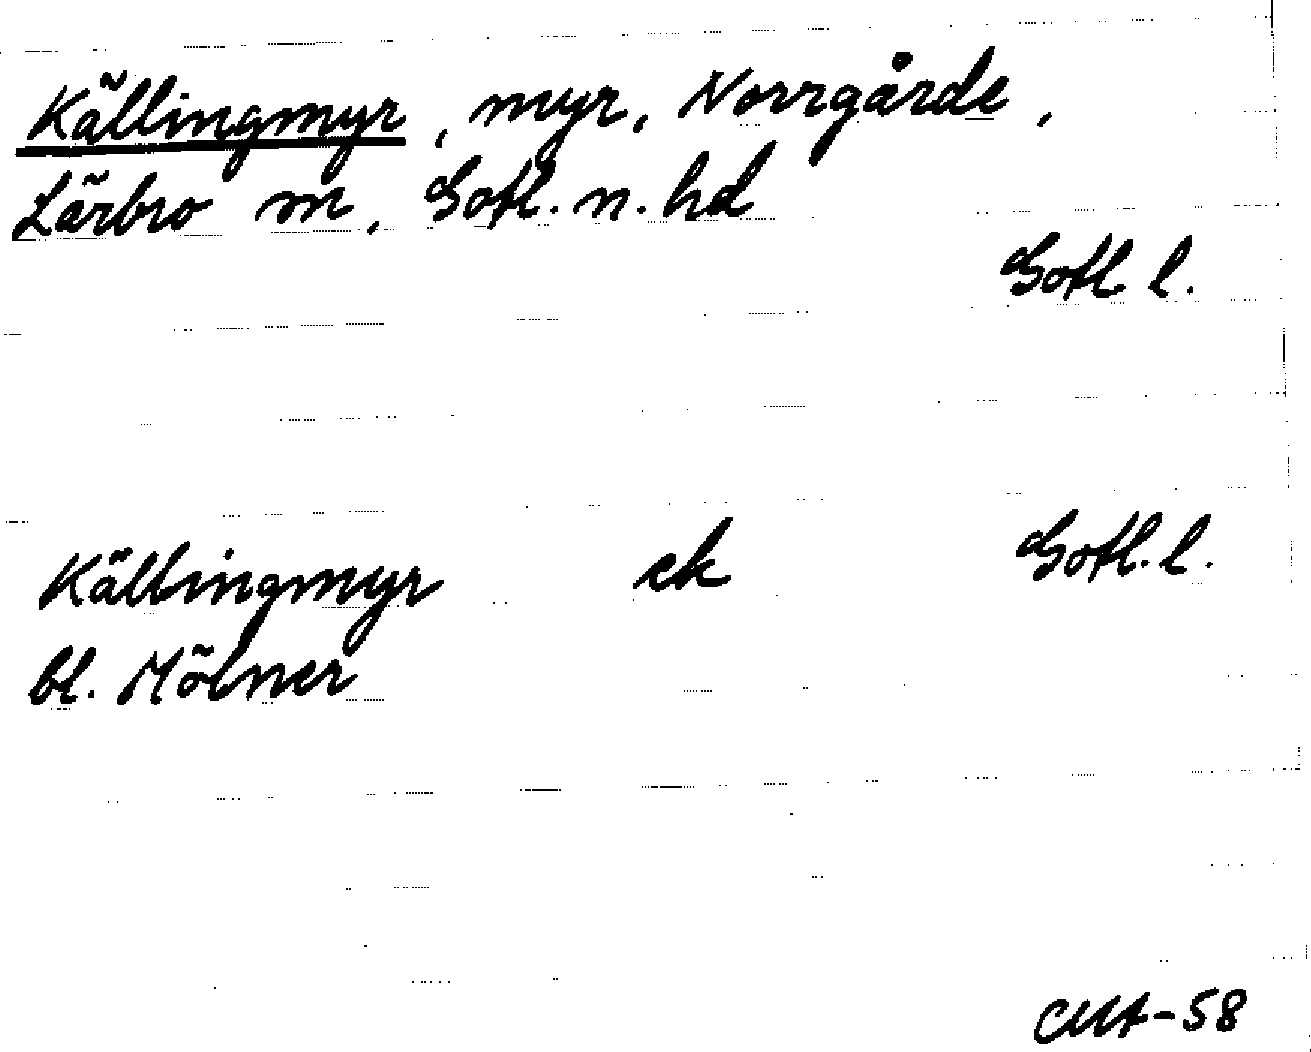 Källingmyr, myr, Norrgårde,
Lärbro sn, Gotl. n. hd
Gotl l.
Källingmyr ek Gotl. l.
bl. Mölner
CMA-58